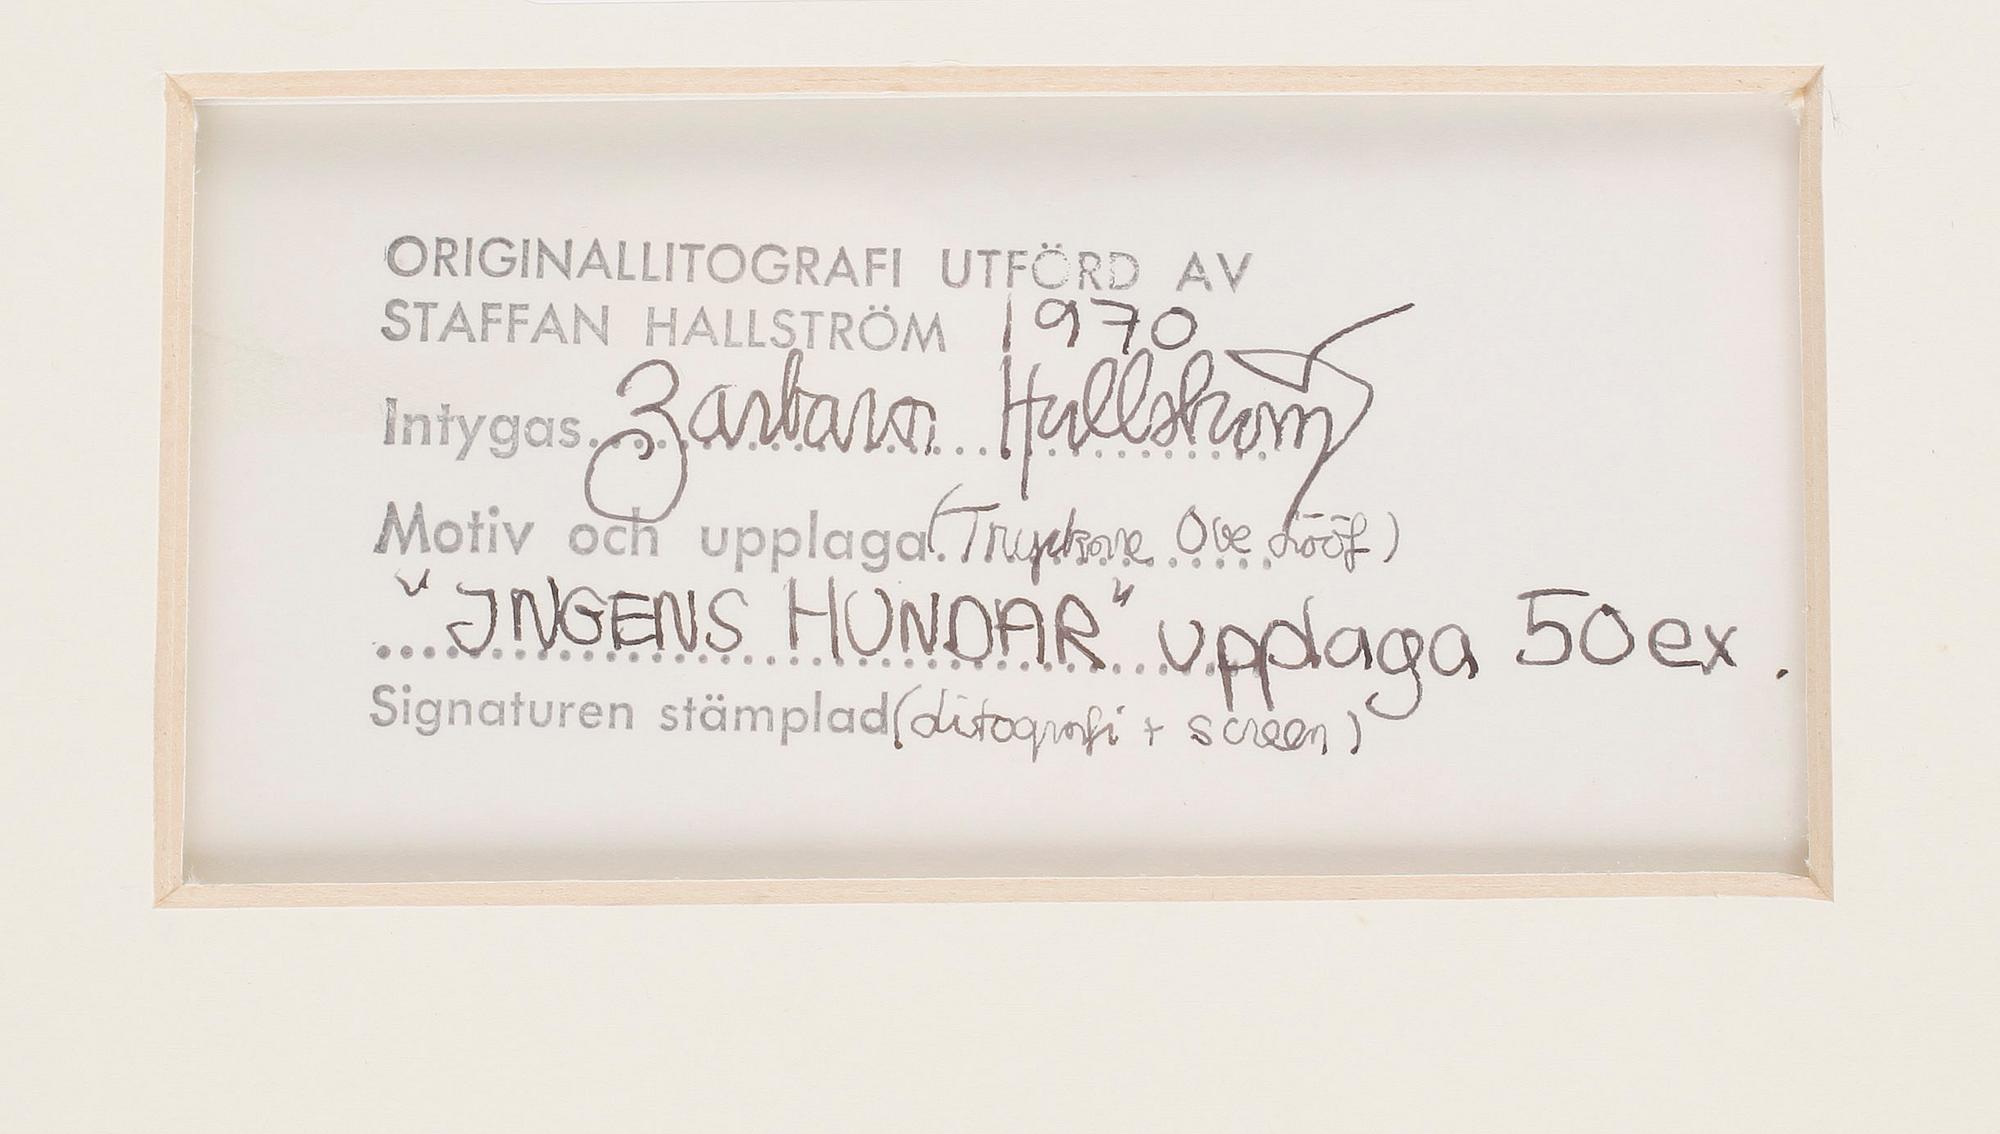 ORIGINALLITOGRAFI UTFÖRD AV
STAFFAN HALLSTRÖM 1970
Intygas Barbara Hallström
Motiv och upplaga (Tryckare Ove Lööf)
"INGENS HUNDAR" upplaga 50 ex.
Signaturen stämplad (litografi + screen)